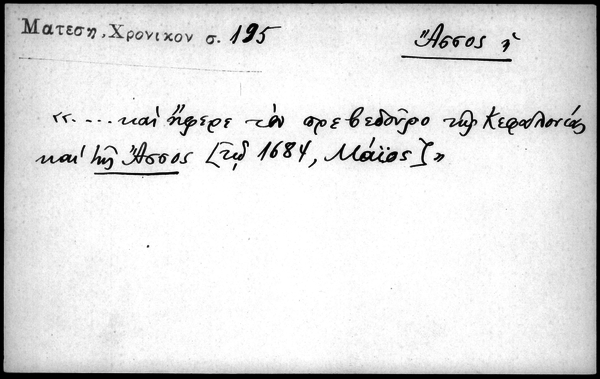 Ματεση, Χρονικον σ. 195
Ἄσσος ἡ
«.... καὶ ἤφερε τὸν πρεβεδοῦρο τῆς Κεφαλονίας
καὶ τῆς Ἄσσος [τῷ 1684, Μάϊος]»